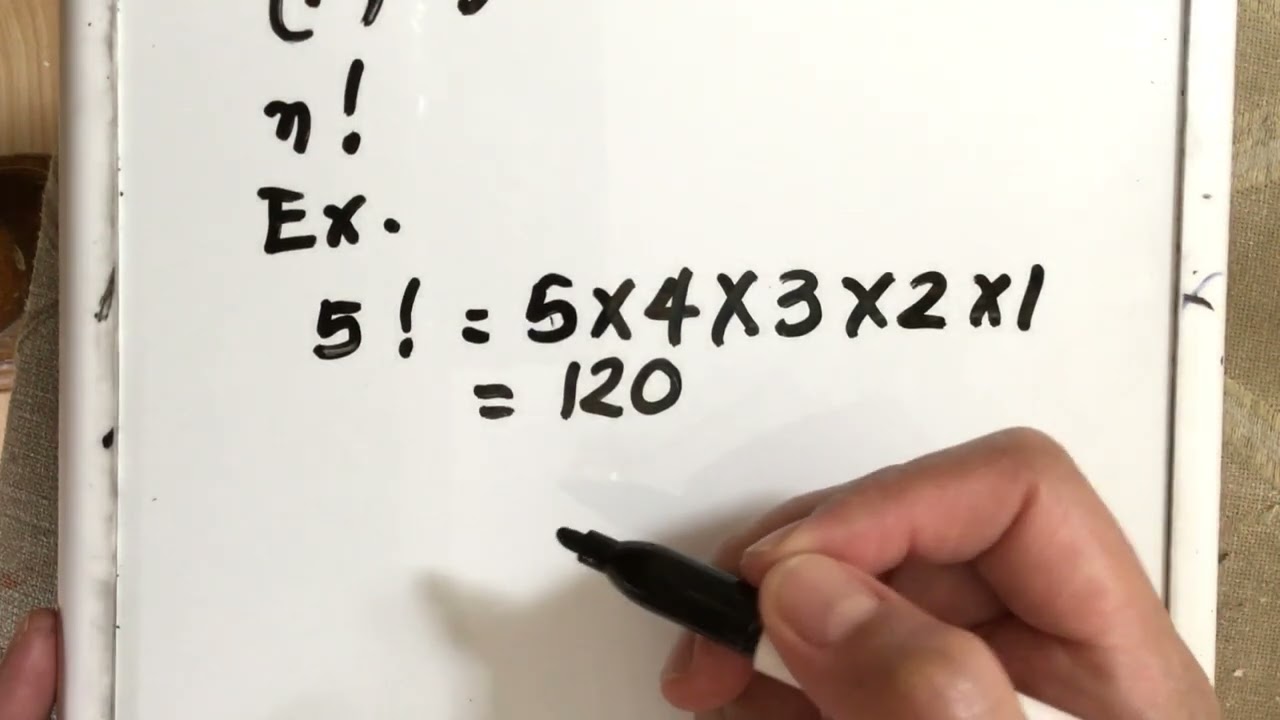 n!
Ex.
5! = 5×4×3×2×1
= 120